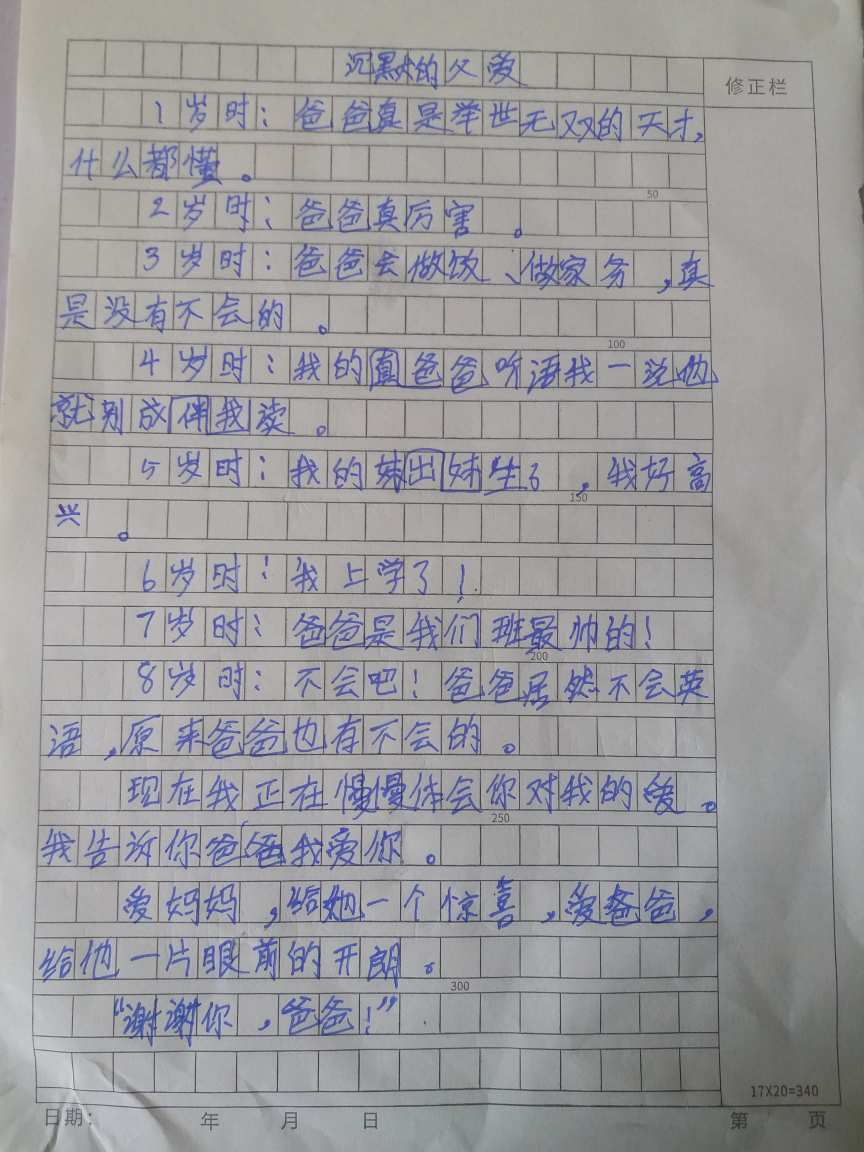 沉默的父爱
修正栏
1岁时：爸爸真是举世无双的天才，
什么都懂。
50
2岁时：爸爸真厉害。
3岁时：爸爸会做饭、做家务，真
是没有不会的。
100
4岁时：我的真爸爸听话我一说他
就别成伴我读。
5岁时：我的妹出妹生了，我好高
150
兴。
6岁时：我上学了！
7岁时：爸爸是我们班最帅的！
200
8岁时：不会吧！爸爸居然不会英
语，原来爸爸也有不会的。
现在我正在慢慢体会你对我的爱。
250
我告诉你爸爸我爱你。
爱妈妈，给她一个惊喜，爱爸爸，
给他一片眼前的开朗。
300
“谢谢你，爸爸！”
17X20=340
日期： 年 月 日 第 页